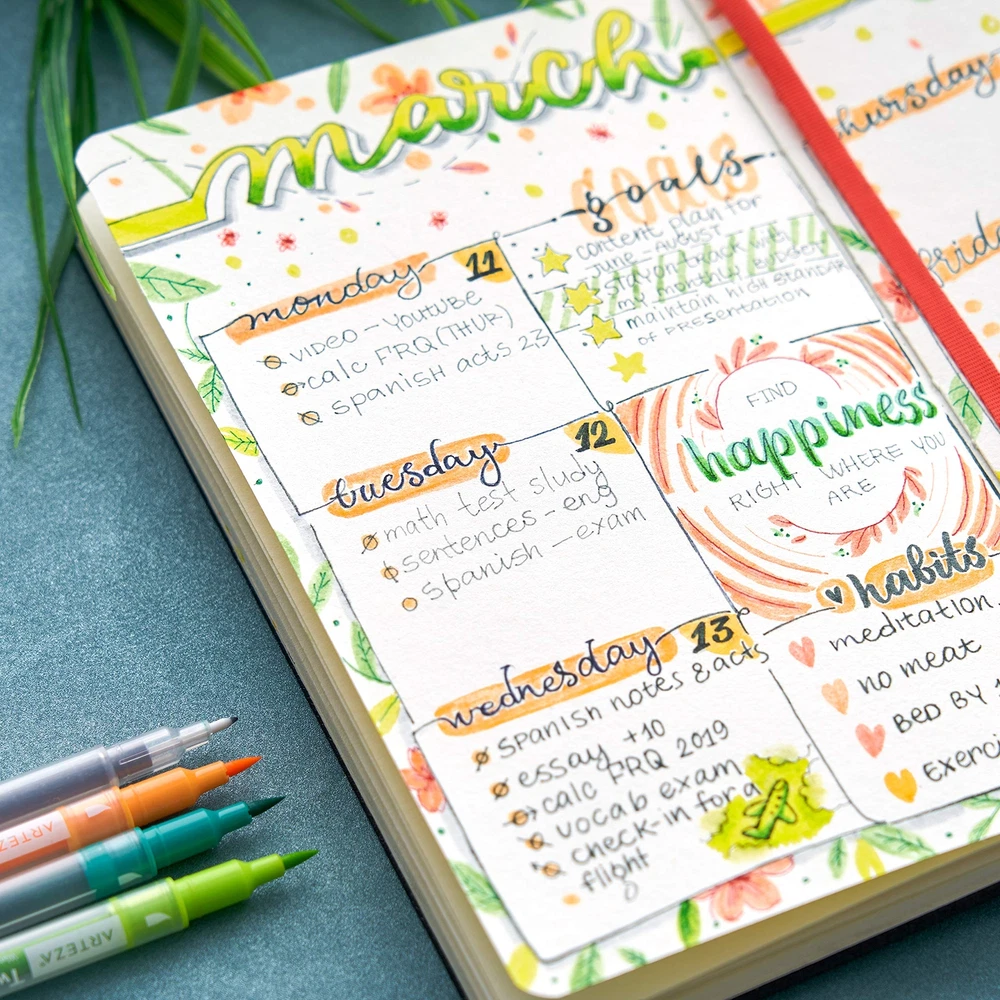 march
monday 11
VIDEO - YOUTUBE
calc FRQ (THUR)
spanish acts 2,3
tuesday 12
math test study
sentences - eng
spanish - exam
wednesday 13
spanish notes & acts
essay +10
calc FRQ 2019
vocab exam
check-in for a
flight
goals
content plan for
JUNE - AUGUST
my monthly budget
maintain high standar
of PRESENTATION
FIND
happiness
RIGHT WHERE YOU
ARE
habits
meditation
no meat
BED BY
Exerci
thursday
friday
ARTEZA
ARTEZA